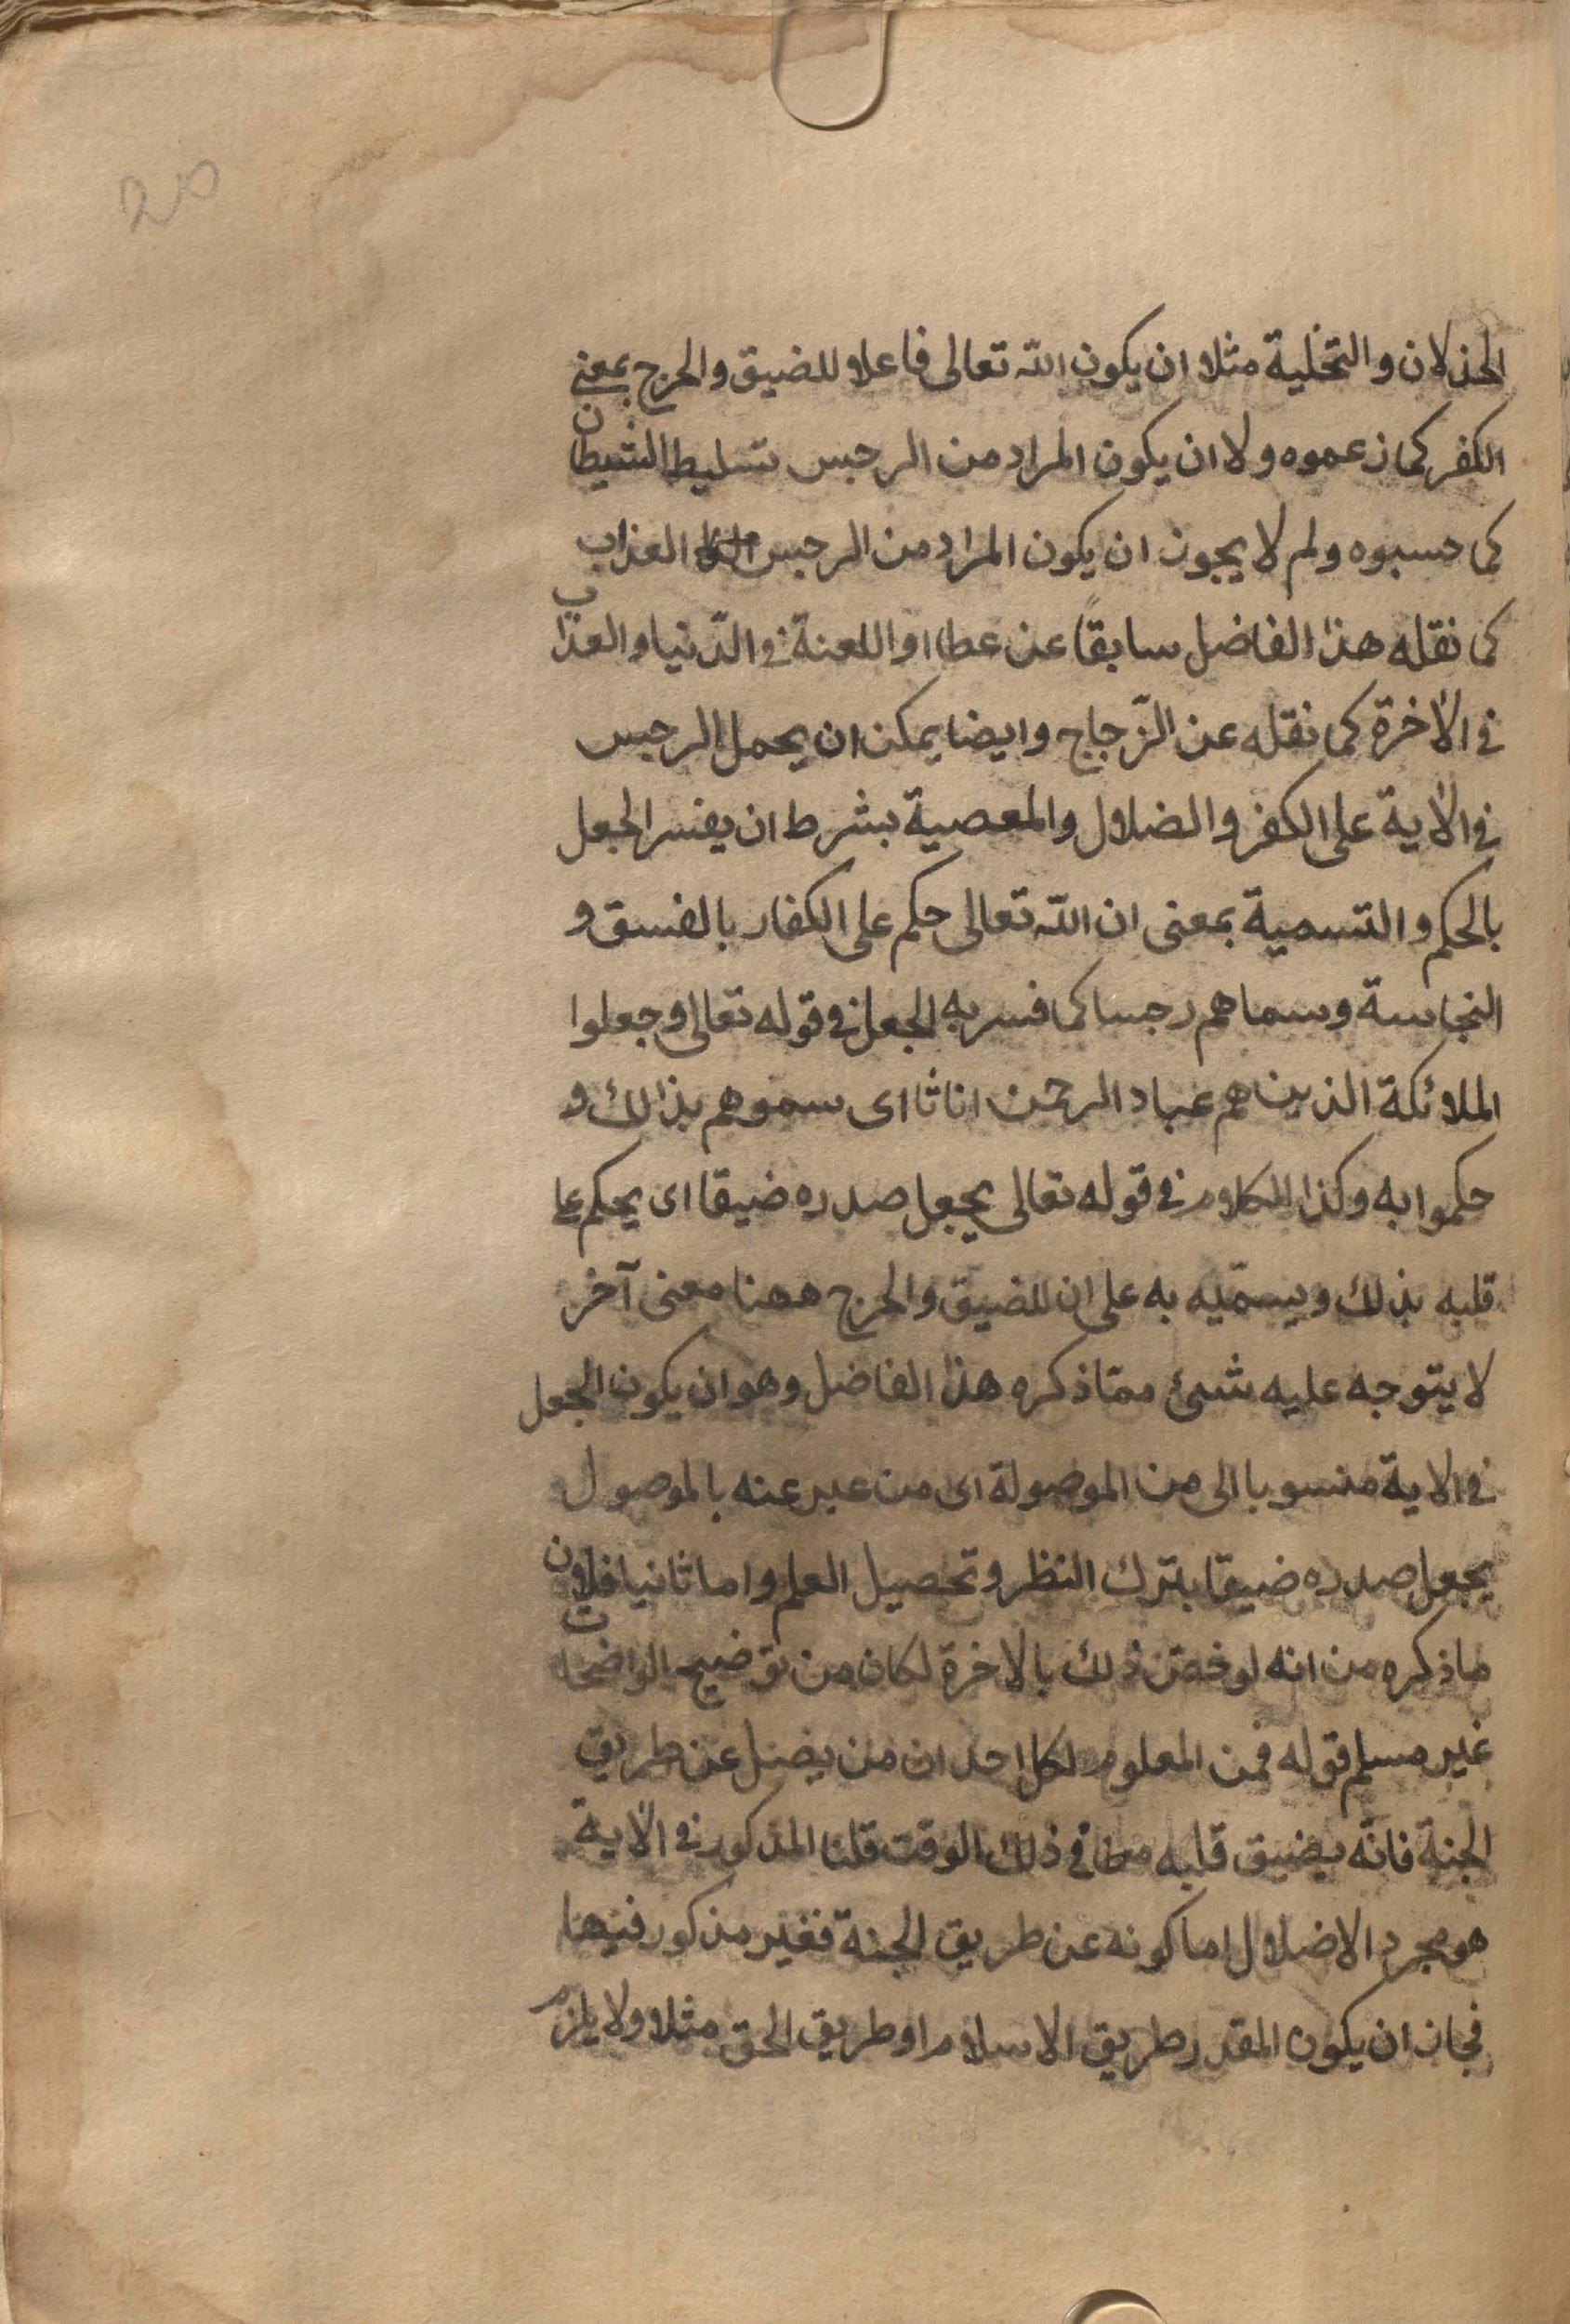 20
الخذلان والتخلية مثلا ان يكون الله تعالى فاعلا للضيق والحرج بمعنى
الكفر كما زعموه ولا ان يكون المراد من الرجس تسليط الشيطان
كما حسبوه ولم لا يجوز ان يكون المراد من الرجس العذاب
كما نقله هذا الفاضل سابقاً عن عطا او اللعنة في الدّنيا والعذاب
في الآخرة كما نقله عن الزّجاج وايضا يمكن ان يحمل الرجس
في الآية على الكفر والضلال والمعصية بشرط ان يفسر الجعل
بالحكم والتسمية بمعنى ان الله تعالى حكم على الكفار بالفسق و
النجاسة وسماهم رجسا كما فسر به الجعل في قوله تعالى وجعلوا
الملائكة الذين هم عباد الرحمن اناثا اى سموهم بذالك و
حكموا به وكذا الكلام في قوله تعالى يجعل صدره ضيقا اى يحكم على
قلبه بذلك ويسمّيه به على ان للضيق والحرج ههنا معنى آخر
لا يتوجه عليه شئ ممّا ذكره هذا الفاضل وهو ان يكون الجعل
في الاية منسوبا الى من الموصولة اى من عبر عنه بالموصول
يجعل صدره ضيقا بترك النظر وتحصيل العلم واما ثانيا فلان
ماذكره من انه لو خص ذلك بالاخرة لكان من توضيح الواضحات
غير مسلم قوله فمن المعلوم لكل احد ان من يضل عن طريق
الجنة فانّه يضيق قلبه في ذلك الوقت قلنا المذكور في الآية
هو مجرد الاضلال اما كونه عن طريق الجنة فغير مذكور فيها
فجاز ان يكون المقدر طريق الاسلام او طريق الحق مثلا ولا يلزم